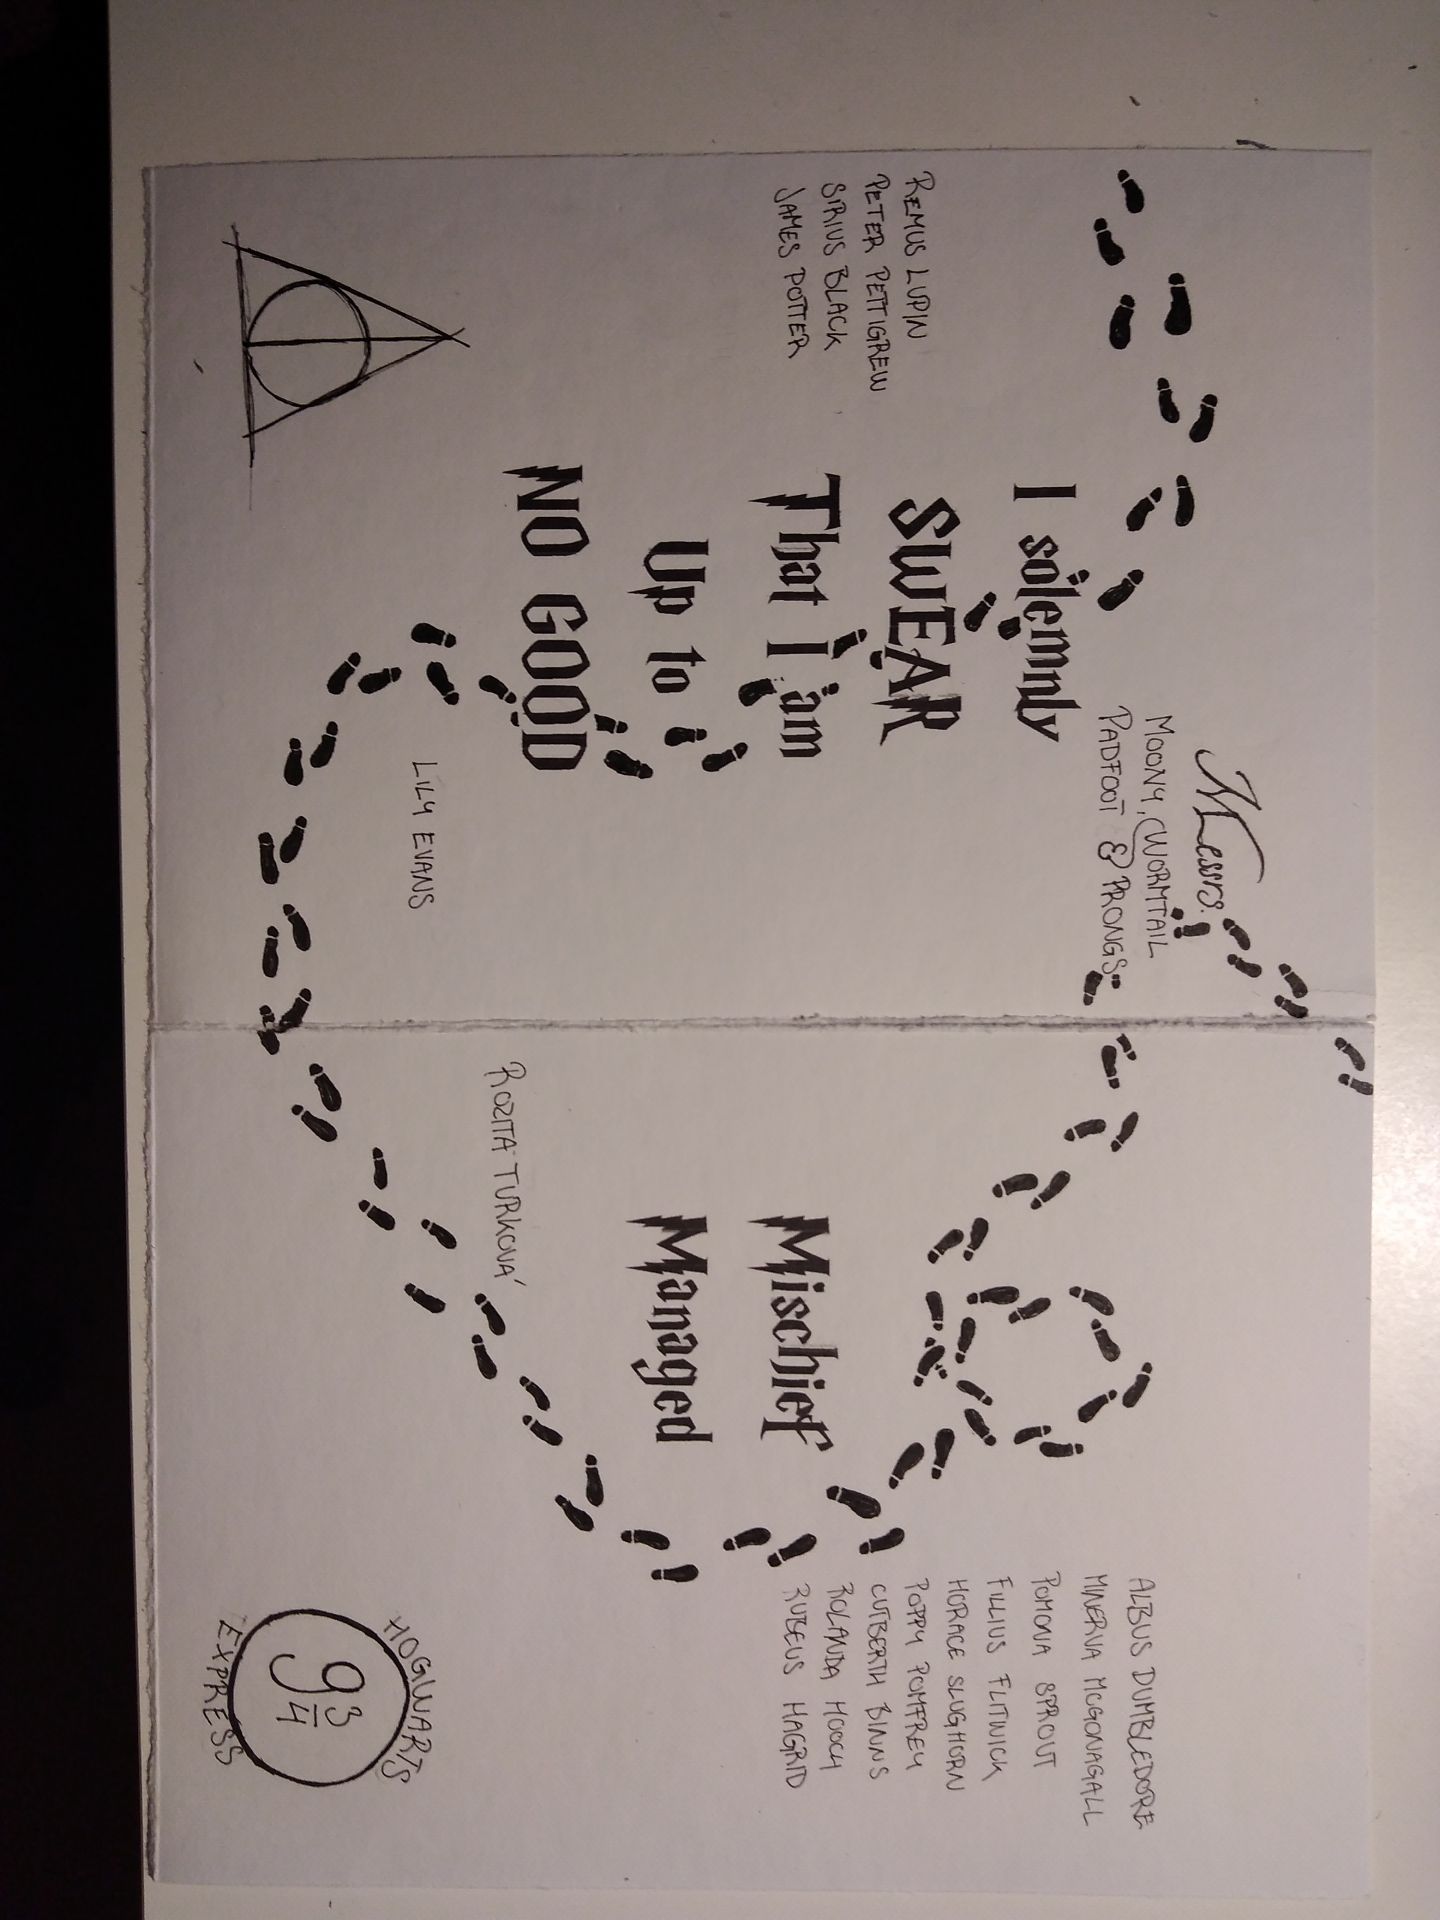 Messrs.
MOONY, WORMTAIL
PADFOOT & PRONGS
I solemnly
SWEAR
That I am
Up to
NO GOOD
REMUS LUPIN
PETER PETTIGREW
SIRIUS BLACK
JAMES POTTER
LILY EVANS
ALBUS DUMBLEDORE
MINERVA MCGONAGALL
POMONA SPROUT
FILIUS FLITWICK
HORACE SLUGHORN
POPPY POMFREY
CUTBERTH BINNS
ROLANDA HOOCH
RUBEUS HAGRID
Mischief
Managed
ROZITA TURKOVÁ
HOGWARTS
9 3/4
EXPRESS